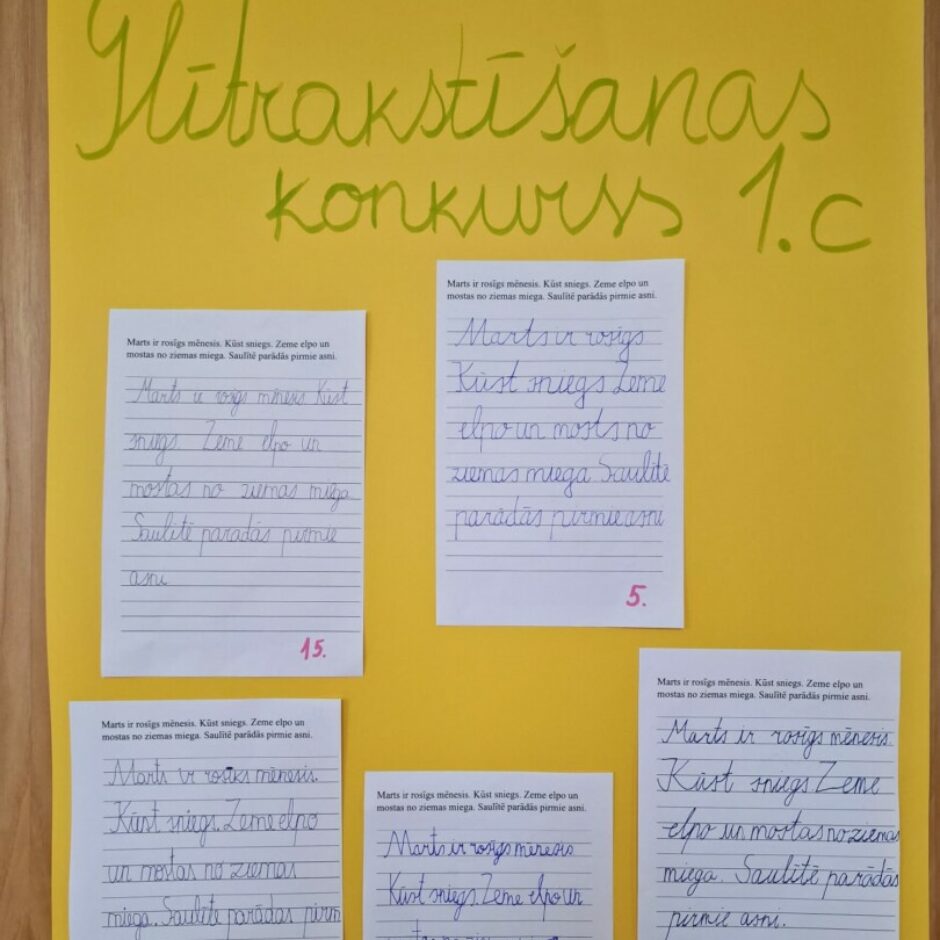 Glītrakstīšanas
konkurss 1.c
Marts ir rosīgs mēnesis. Kūst sniegs. Zeme elpo un
mostas no ziemas miega. Saulītē parādās pirmie asni.
Marts ir rosīgs mēnesis Kūst
sniegs. Zeme elpo un
mostas no ziemas miega
Saulītē paradās pirmie
asni
15.
Marts ir rosīgs mēnesis. Kūst sniegs. Zeme elpo un
mostas no ziemas miega. Saulītē parādās pirmie asni.
Marts ir rosīgs
Kūst sniegs Zeme
elpo un mosts no
ziemas miega Saulītē
parādās pirmie asni
5.
Marts ir rosīgs mēnesis. Kūst sniegs. Zeme elpo un
mostas no ziemas miega. Saulītē parādās pirmie asni.
Marts ir rosīks mēnesis.
Kūst sniegs. Zeme elpo
un mostas no ziemas
miega. Saulītē parādas pirm
Marts ir rosīgs mēnesis. Kūst sniegs. Zeme elpo un
mostas no ziemas miega. Saulītē parādās pirmie asni.
Marts ir rosīgs mēnesis
Kūst sniegs. Zeme elpo un
Marts ir rosīgs mēnesis. Kūst sniegs. Zeme elpo un
mostas no ziemas miega. Saulītē parādās pirmie asni.
Marts ir rosīgs mēnesis.
Kūst sniegs Zeme
elpo un mostas no ziemas
miega. Saulītē parādās
pirmie asni.